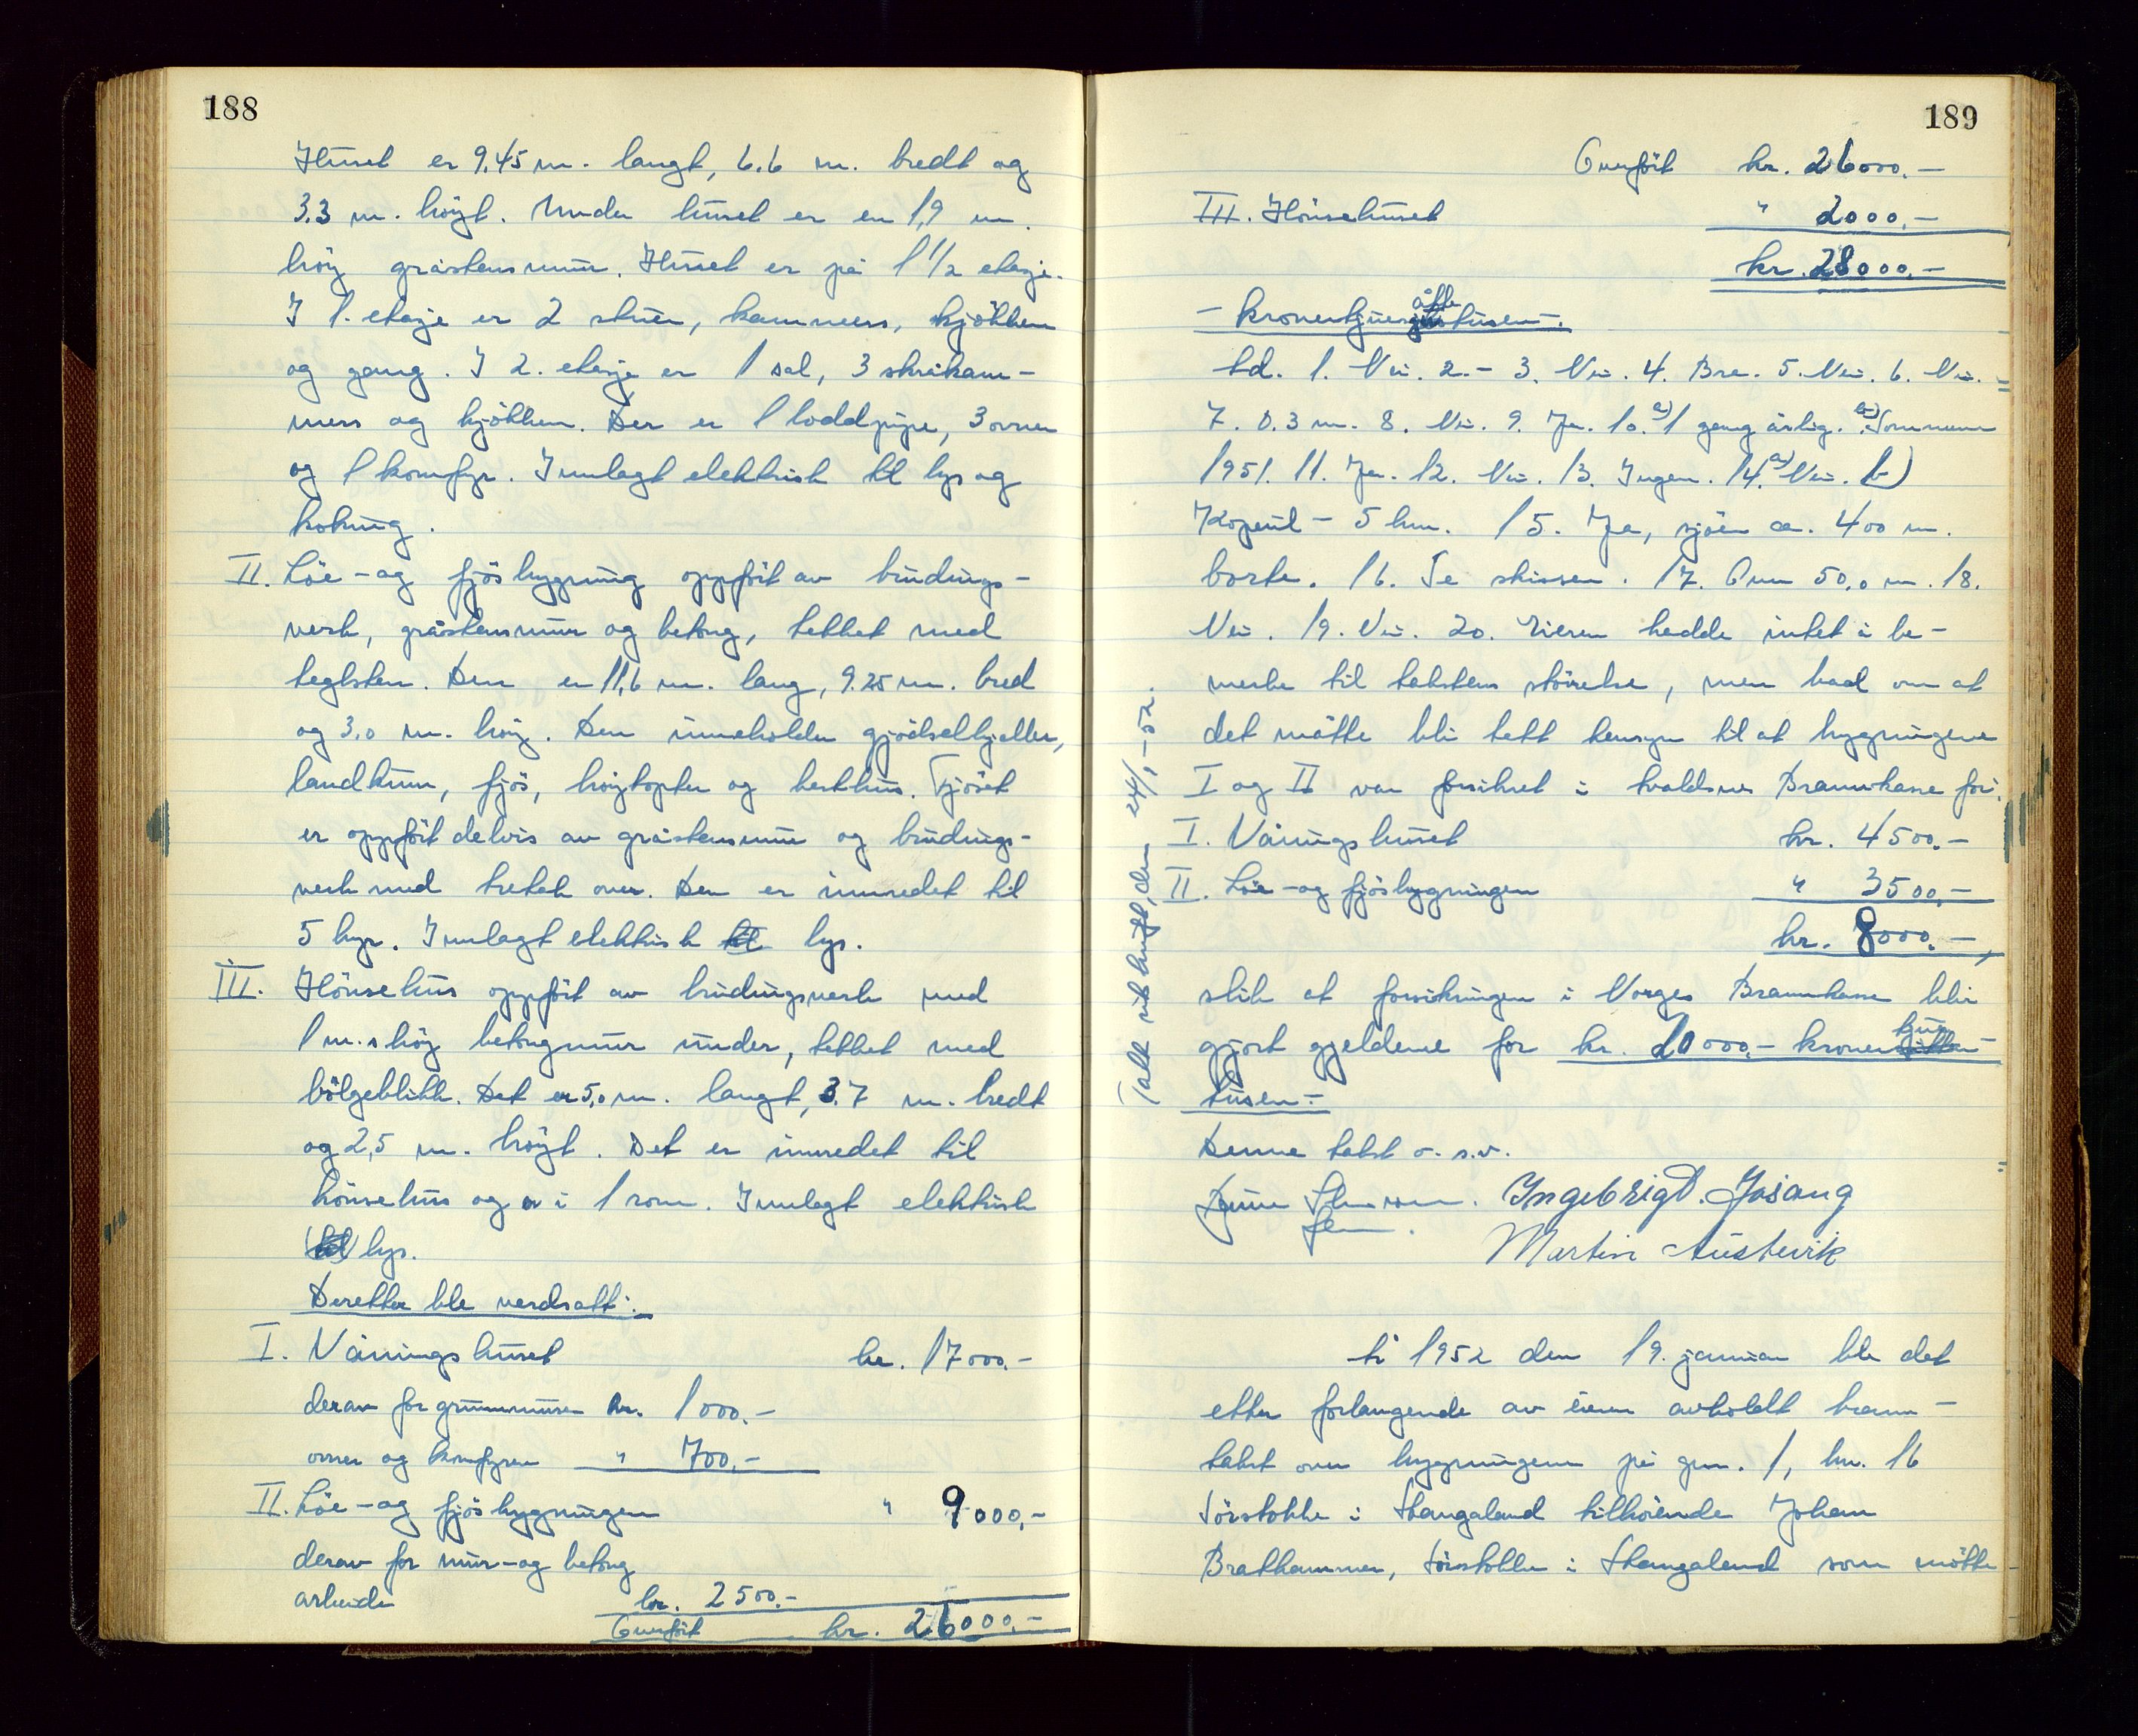 188
Huset er 9.45 m. langt, 6.6 m. bredt og
3.3 m. høyt. Under huset er en 1,9 m.
høy gråstensmur. Huset er på 1 1/2 etasje.
I 1. etasje er 2 stuer, kammers, kjøkken
og gang. I 2. etasje er 1 sal, 3 skråkam-
mers og kjøkken. Der er 1 loddpipe, 3 ovner
og 1 komfyr. Innlagt elektrisk til lys og
koking.
II. Löe- og fjösbygning oppfört av bindings-
verk, gråstensmur og betong, tekket med
teglsten. Den er 11,6 m. lang, 9.25 m. bred
og 3,0 m. höy. Den inneholder gjödselkjeller,
landkum, fjös, höytopter og hesthus. Fjöset
er oppfört delvis av gråstensmur og bindings-
verk med tretak over. Den er innredet til
5 kyr. Innlagt elektrisk til lys.
III. Hönsehus oppfört av bindingsverk med
1 m. höy betongmur under, tekket med
bölgeblikk. Det er 5,0 m. langt, 3.7 m. bredt
og 2,5 m. höyt. Det er innredet til
hönsehus og er i 1 rom. Innlagt elektrisk
til lys.
Deretter ble verdsatt:
I. Våningshuset kr. 17000.-
derav for grunnmuren kr. 1000.-
ovner og komfyren " 700.-
II. Löe- og fjösbygningen " 9000,-
derav for mur- og betong
arbeide kr. 2500.-
Overfört kr. 26000.-
189
Overfört kr. 26000.-
III. Hönsehuset " 2000.-
kr. 28000.-
åtte
- kronertjuetusen-.
td. 1. Nei. 2.- 3. Nei. 4. Bra. 5. Nei. 6. Nei.
7. 0.3 m. 8. Nei. 9. Ja. 10. a) 1 gang årlig. b) Sommeren
1951. 11. Ja. 12. Nei. 13. Ingen. 14. a) Nei. b)
Kopervik - 5 km. 15. Ja, sjöen ca. 400 m.
borte. 16. Se skissen. 17. Over 50,0 m. 18.
Nei. 19. Nei. 20. Eieren hadde intet å be-
merke til takstens störrelse, men bad om at
det måtte bli tatt hensyn til at bygningene
I og II var forsikret i Avaldsnes Brannkasse for:
I. Våningshuset kr. 4500.-
II. Löe- og fjösbygningen " 3500,-
kr. 8000.-,
slik at forsikringen i Norges Brannkasse blir
tjue
gjort gjeldene for kr. 20000.- kroner
tusen-
Denne takst o. s. v.
Ingebrigt. Jøsang
Martin Austevik
Takst utskrift, den 24/1-52.
År 1952 den 19. januar ble det
etter forlangende av eieren avholdt brann-
takst over bygningene på gnr. 1, bnr. 16
Sörstokke i Skangaland tilhörende Johan
Brakhammer, Sörstokke i Skangaland som mötte